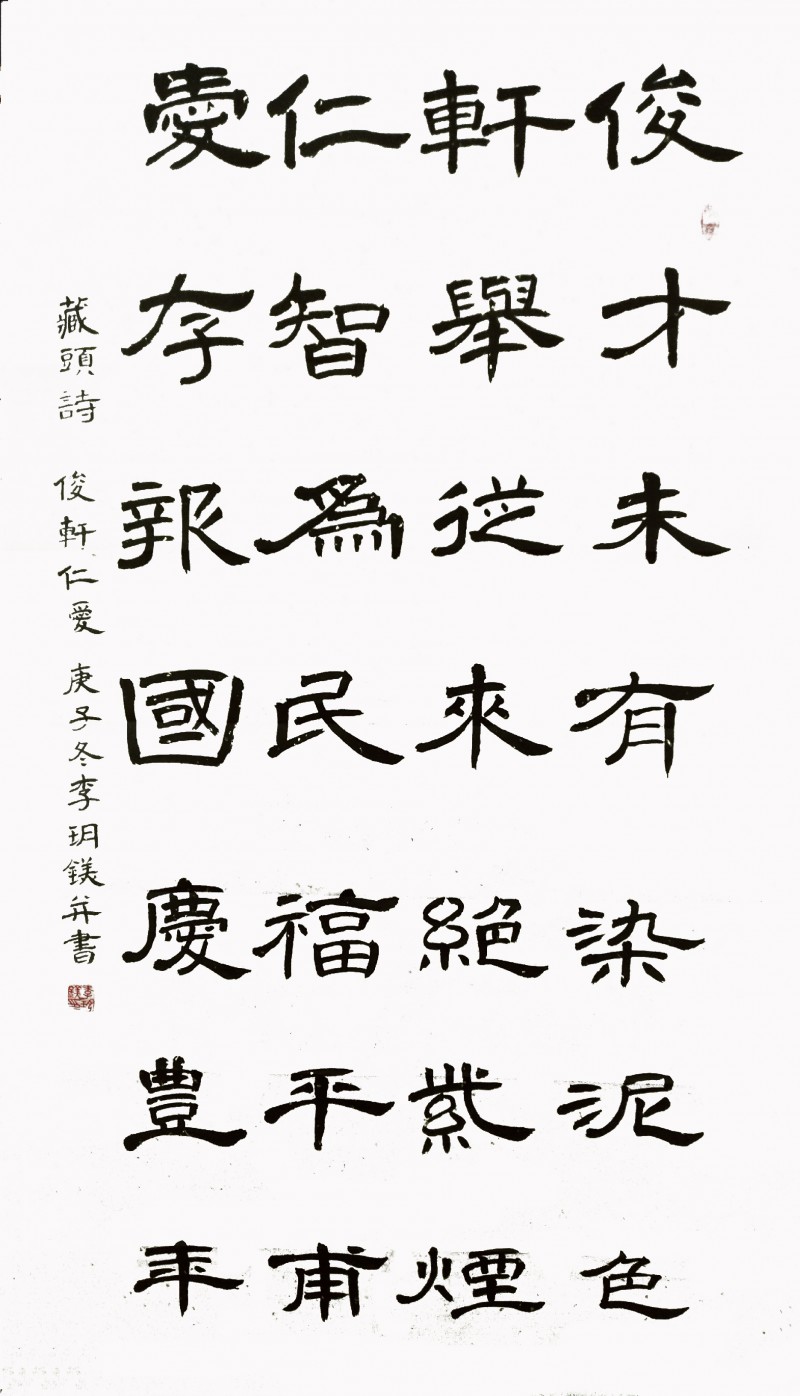 俊才未有染泥色
軒舉從來絕紫煙
仁智為民福平甫
愛存報國慶豐年
藏頭詩 俊軒仁愛 庚子冬李玥鎂并書